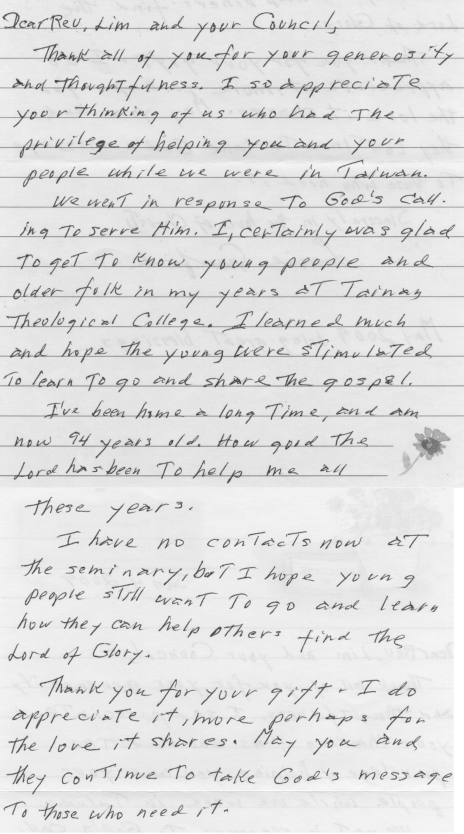 Dear Rev. Lim and your Council,
Thank all of you for your generosity
and thoughtfulness. I so appreciate
your thinking of us who had the
privilege of helping you and your
people while we were in Taiwan.
We went in response to God's call-
ing to serve Him. I, certainly was glad
to get to know young people and
older folk in my years at Tainan
Theological College. I learned much
and hope the young were stimulated
to learn to go and share the gospel.
I've been home a long time, and am
now 94 years old. How good the
Lord has been to help me all
these years.
I have no contacts now at
the seminary, but I hope young
people still want to go and learn
how they can help others find the
Lord of Glory.
Thank you for your gift - I do
appreciate it, more perhaps for
the love it shares. May you and
they continue to take God's message
to those who need it.